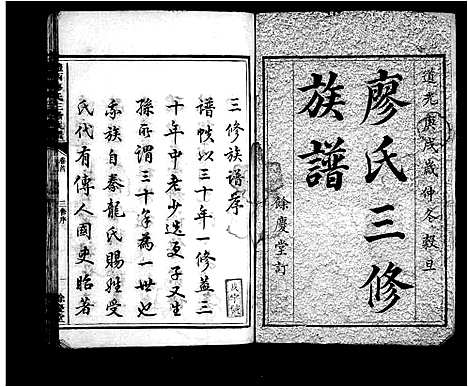 道光庚戌歲仲冬穀旦
廖氏三修
族譜
餘慶堂訂
三修族譜序
譜帙以三十年一修蓋三
十年中老少迭更子又生
孫所謂三十年為一世也
我族自秦龍氏賜姓受
氏代有傳人國史昭著
卷首
三修序
餘慶堂